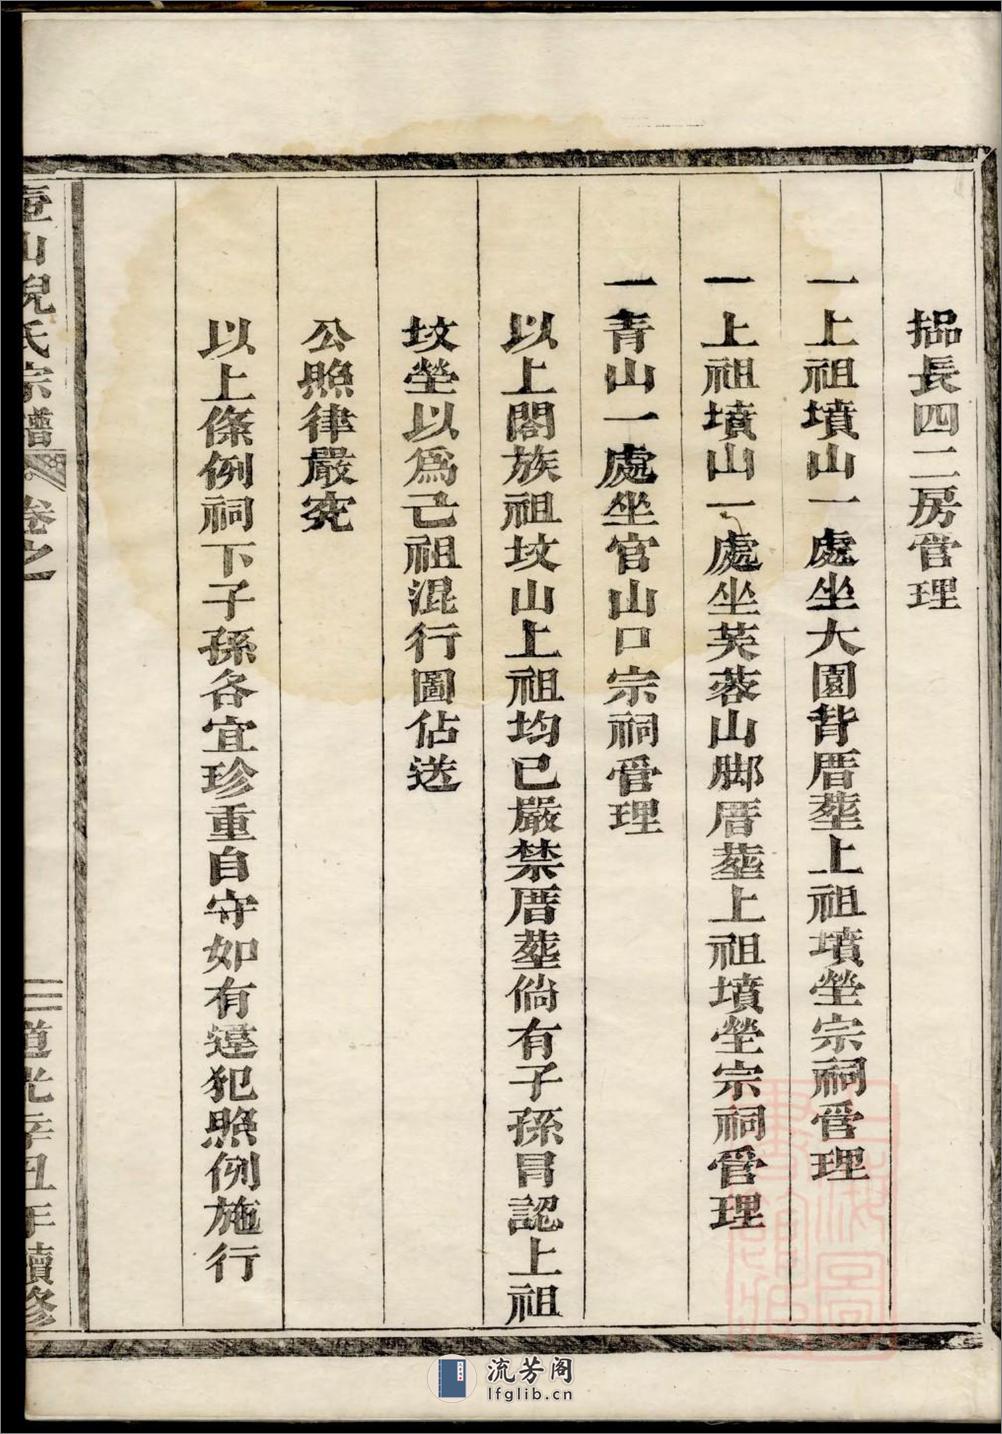 揾長四二房管理
一上祖墳山一處坐大園背厝塟上祖墳塋宗祠管理
一上祖墳山一處坐芙蓉山脚厝塟上祖墳塋宗祠管理
一青山一處坐官山口宗祠管理
以上閤族祖坟山上祖均已嚴禁厝塟倘有子孫冐認上祖
坟塋以爲己祖混行圖佔送
公照律嚴究
以上條例祠下子孫各宜珍重自守如有違犯照例施行
壺山倪氏宗譜 卷之一 三 道光辛丑年續修
流芳阁
lfglib.cn